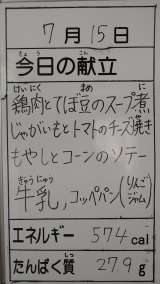 7月15日
今日の献立
鶏肉とてぼ豆のスープ煮
じゃがいもとトマトのチーズ焼き
もやしとコーンのソテー
牛乳，コッペパン(りんごジャム)
エネルギー 574 cal
たんぱく質 27.9 g